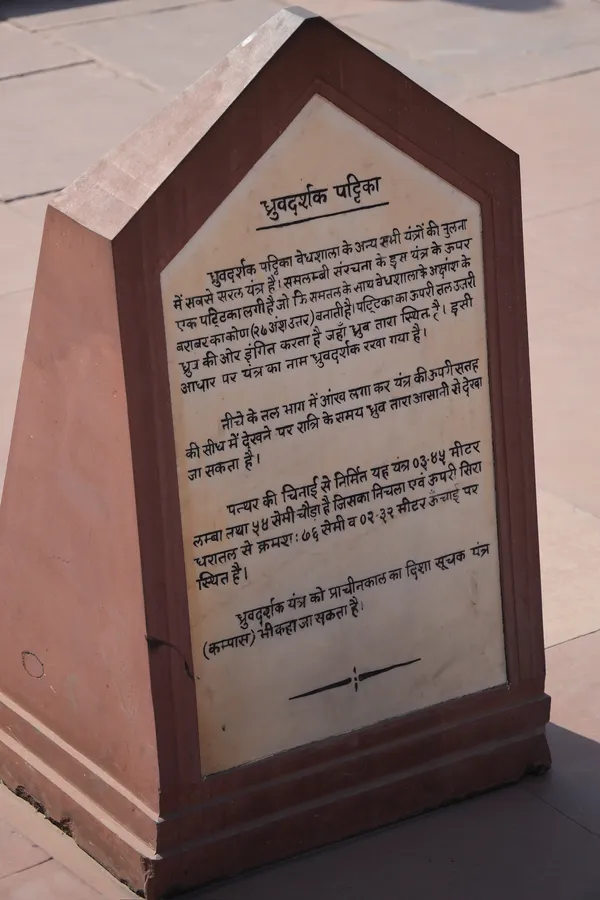 ध्रुवदर्शक पट्टिका
ध्रुवदर्शक पट्टिका वेधशाला के अन्य सभी यंत्रों की तुलना
में सबसे सरल यंत्र है। समलम्बी संरचना के इस यंत्र के ऊपर
एक पट्टिका लगी है जो कि समतल के साथ वेधशाला के अक्षांश के
बराबर का कोण (२७ अंश उत्तर) बनाती है। पट्टिका का ऊपरी तल उत्तरी
ध्रुव की ओर इंगित करता है जहाँ ध्रुव तारा स्थित है। इसी
आधार पर यंत्र का नाम ध्रुवदर्शक रखा गया है।
नीचे के तल भाग में आंख लगा कर यंत्र की ऊपरी सतह
की सीध में देखने पर रात्रि के समय ध्रुव तारा आसानी से देखा
जा सकता है।
पत्थर की चिनाई से निर्मित यह यंत्र ०३.४५ मीटर
लम्बा तथा ५४ सेमी चौड़ा है जिसका निचला एवं ऊपरी सिरा
धरातल से क्रमशः ७६ सेमी व ०२.३२ मीटर ऊँचाई पर
स्थित है।
ध्रुवदर्शक यंत्र को प्राचीनकाल का दिशा सूचक यंत्र
(कम्पास) भी कहा जा सकता है।